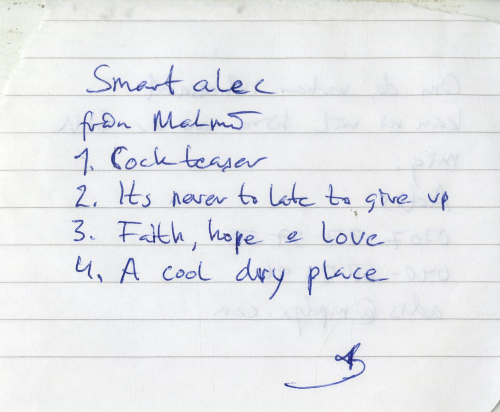 Smart alec
från Malmö
1. Cockteaser
2. Its never to late to give up
3. Faith, hope & Love
4. A cool dry place